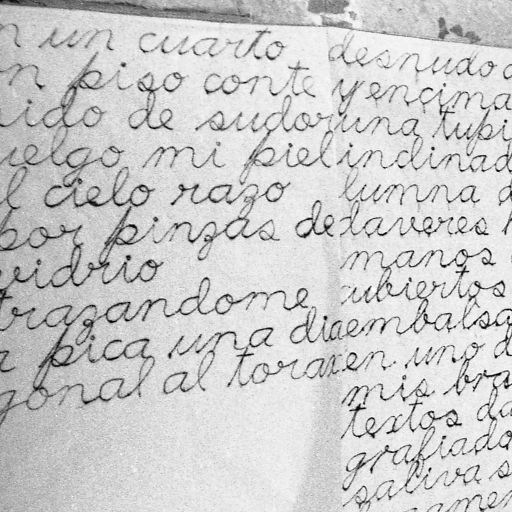 un cuarto
piso conte
de sudor
mi piel
cielo razo
por pinzas de
vidrio
trazandome
pica una dia
gonal al torax
desnudo
y encima
una tupi
indinad
lumna
daveres
manos
cubiertos
embalsa
en uno d
mis bra
textos da
grafiado
saliva s